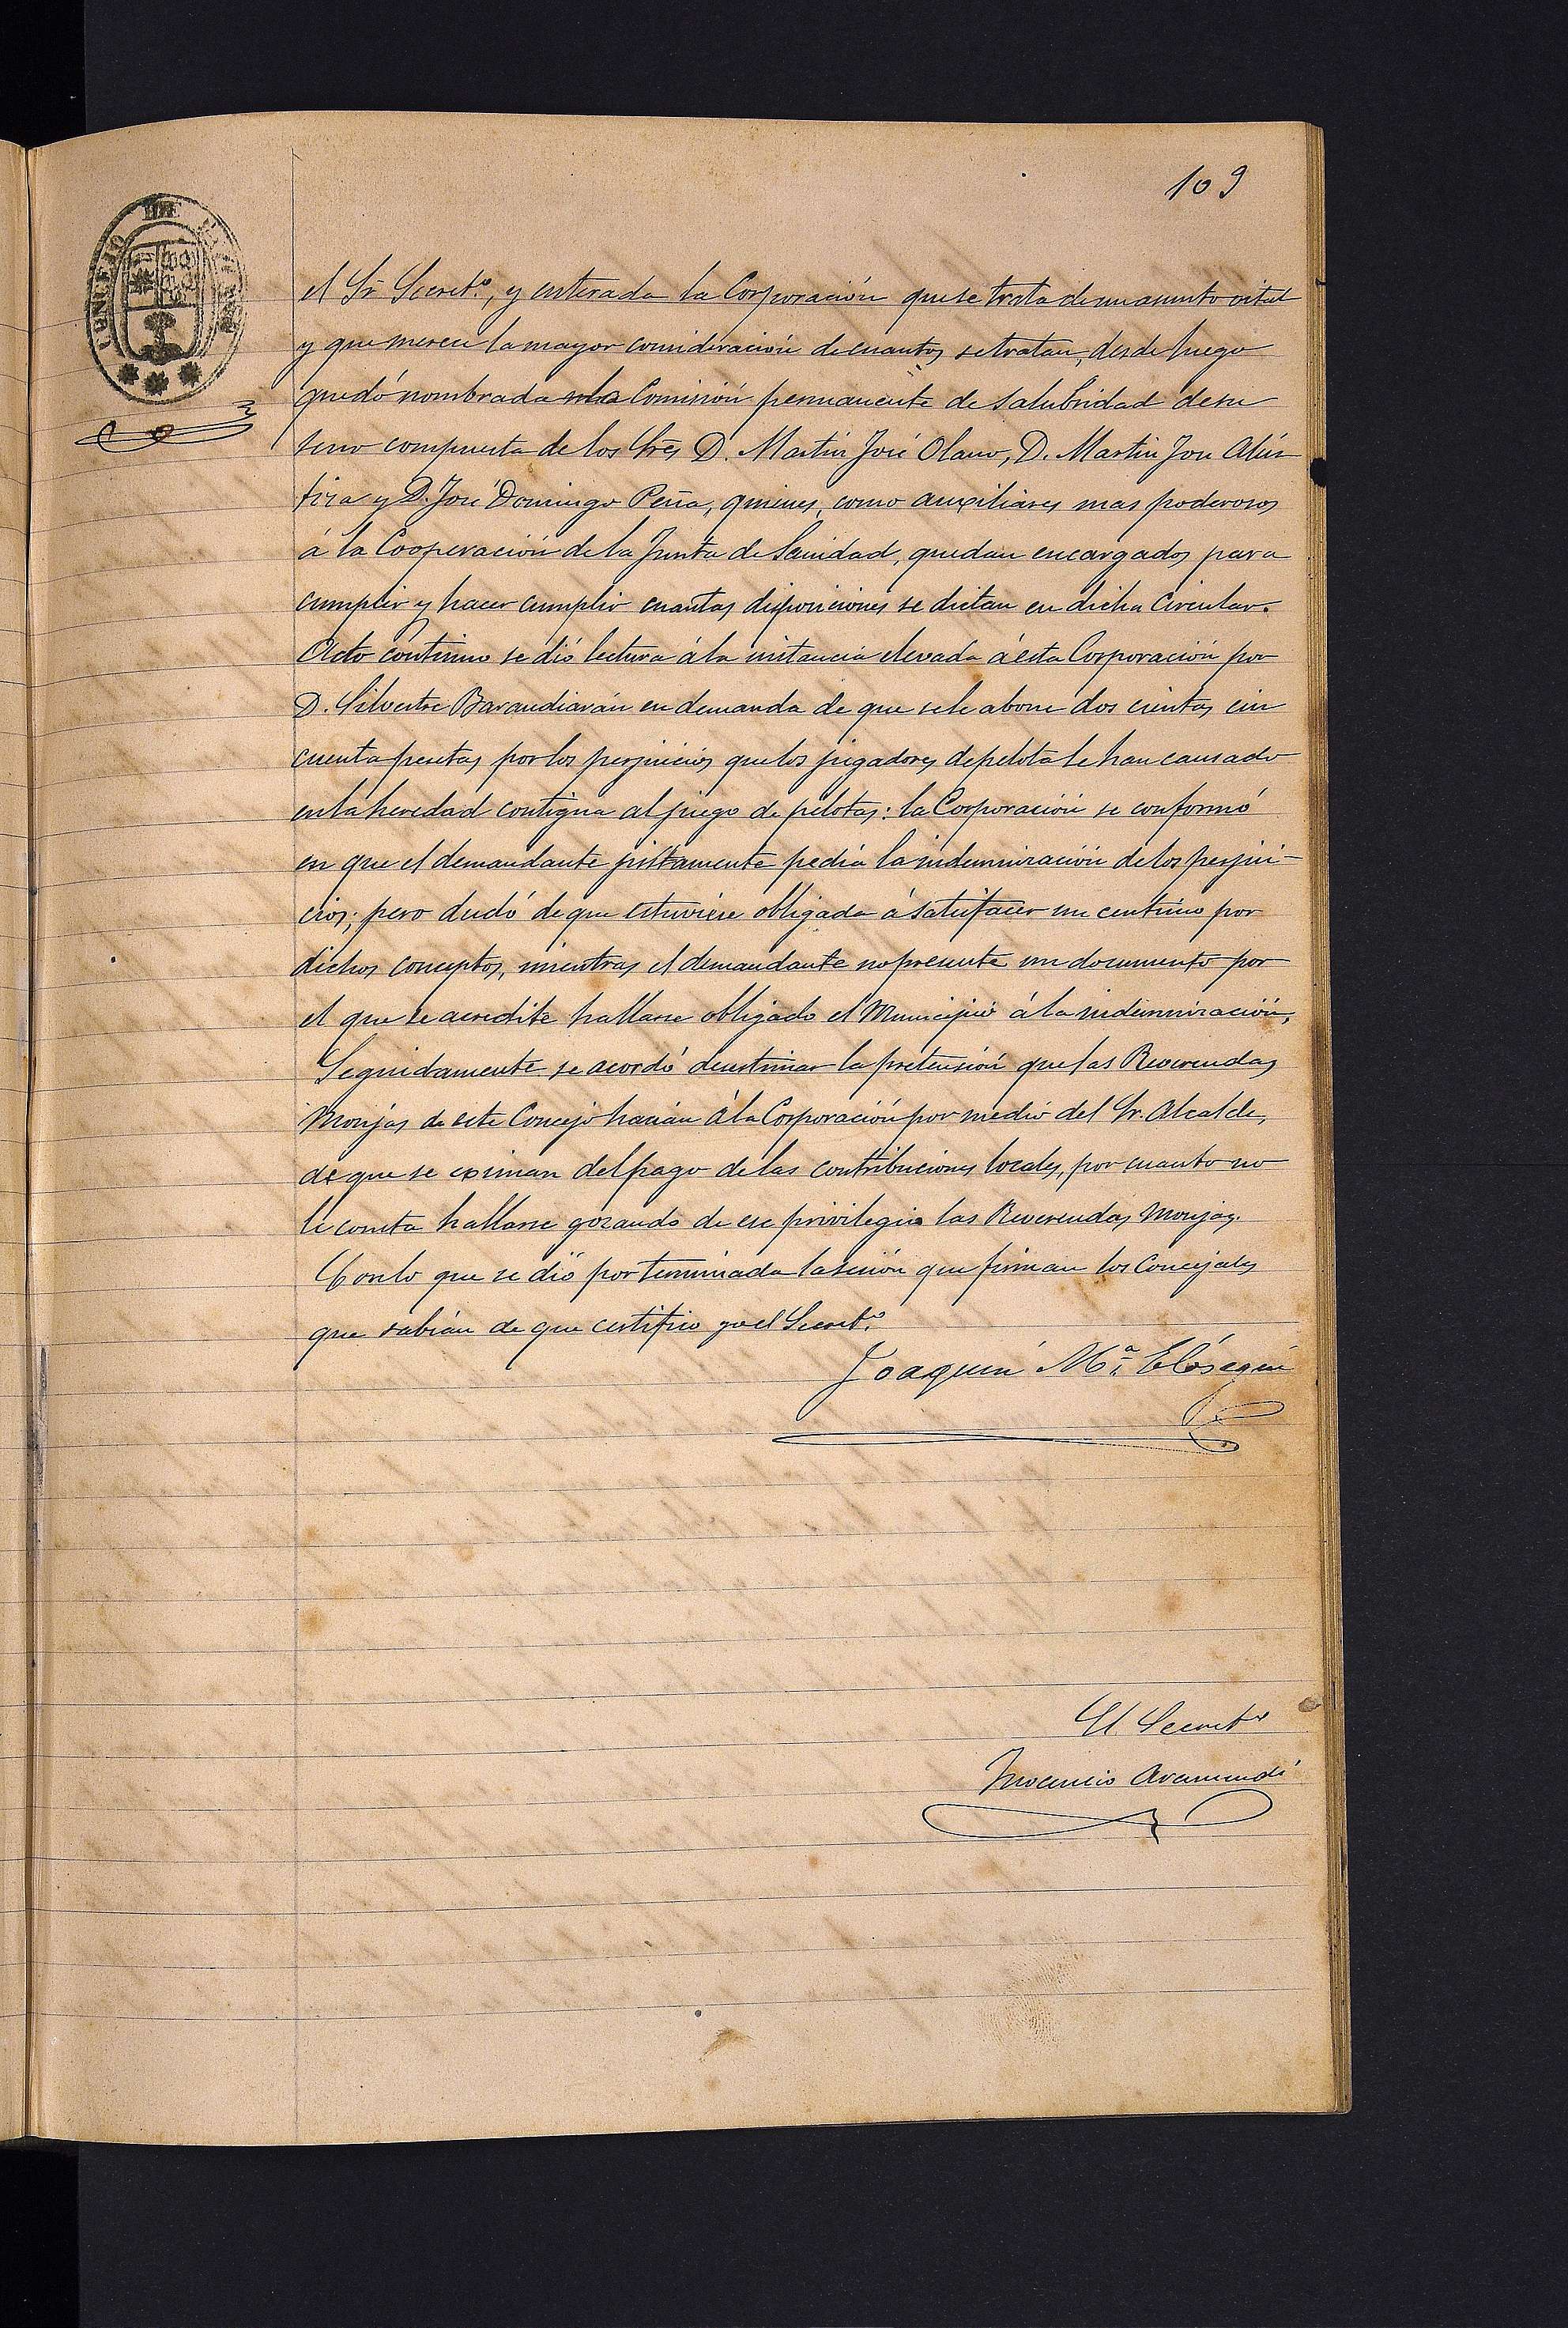 109
el Sr Secret.º, y enterada la Corporación que se trata de un asunto vital
y que merece la mayor consideración de cuantos se tratan, desde luego
quedó nombrada una Comisión permanente de Salubridad de su
seno compuesta de los Sres D. Martín José Olano, D. Martin Jose Alús
tiza y D. José Domingo Peña, quienes, como auxiliares mas poderosos
á la Cooperación de la Junta de Sanidad, quedan encargados para
cumplir y hacer cumplir cuantas disposiciones se dictan en dicha Circular.
Acto contínuo se dió lectura á la instancia elevada á esta Corporación por
D. Silvestre Barandiarán en demanda de que se le abone dos cientas cin
cuenta pesetas por los perjuicios que los jugadores de pelota le han causado
en la heredad contigua al juego de pelotas: la Corporación se conformó
en que el demandante justamente pedia la indemnización de los perjui-
cios; pero dudó de que estuviese obligada á satisfacer un centimo por
dichos conceptos, mientras el demandante no presente un documento por
el que se acredite hallarse obligado el Municipio á la indemnización,
Seguidamente se acordó desestimar la pretensión que las Reverendas
Monjas de este Concejo hacian á la Corporación por medio del Sr. Alcalde,
de que se eximan del pago de las contribuciones locales, por cuanto no
le consta hallarse gozando de ese privilegio las Reverendas Monjas.
Con lo que se dió por terminada la sesión que firman los Concejales
que sabían de que certifico yo el Secret.º
Joaquin M.ª Elósegui
El Secret.º
Inocencio Aramendi
CONCEJO DE